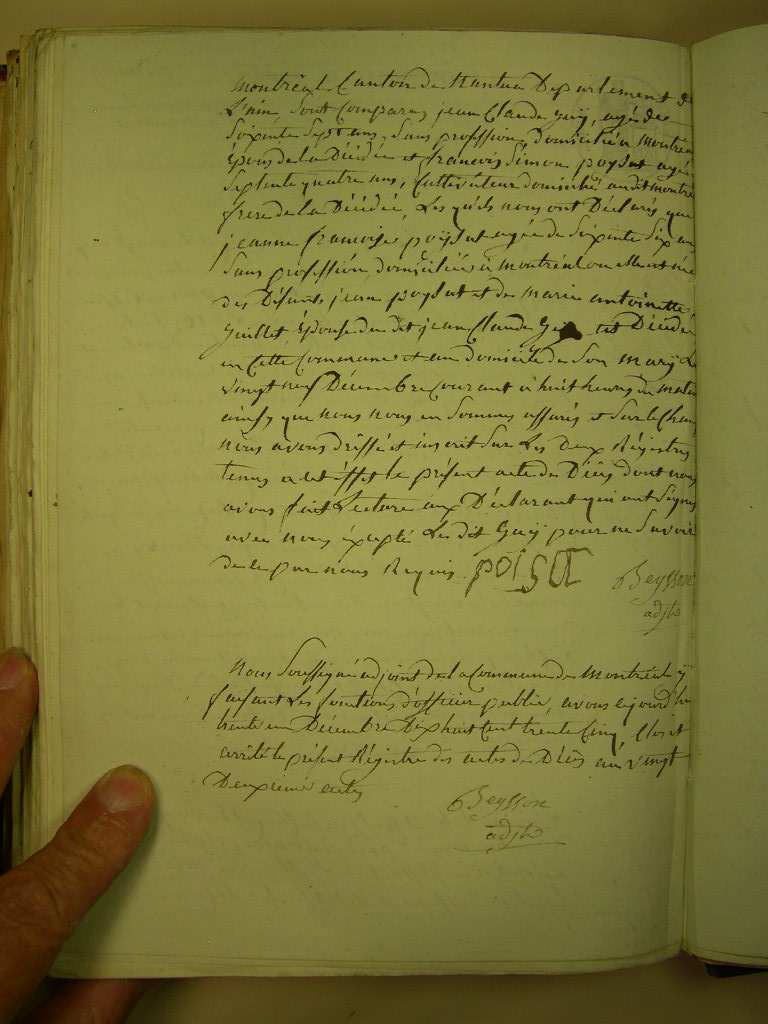 montréal Canton de Nantua Département de
L'ain, Sont Comparus jean Claude Guÿ, agé de
Soixente Sept ans, Sans proféssion, domicilié à montréal
Épous de la Décédée et francois Simon poÿsat agé
Septente quatre ans, Cultivateur domicilié au dit montré
frere de la Décédée, Les quéls nous ont Déclarés que
jeanne francoise poÿsat agée de Soixente Six ans
Sans proféssion, domiciliée à montréal ou elle est née
des Défunts jean poÿsat et de marie antoinette
Guillet, Épouse du dit jean Claude Guÿ est Décédée
en Cette Commune et au domicile de Son mary Le
vingt neuf Décembre Courant à huit heures du matin
ainsÿ que nous nous en Sommes assurés et Sur le Champ
nous avons dréssé et inscrit Sur Les deux Régistres
tenus a cet éffet le présent acte de Décès dont nous
avons fait Lecture aux Déclarant qui ont Signés
avec nous éxcepté Le dit Guÿ pour ne Savoir
de le par nous Requis. poisat Beysson
adjt
Nous Soussigné adjoint de la Commune de Montréal ÿ
faisant Les fonctions d'officier public, avons aujourd'hu
trente un Décembre Dix huit Cent trente Cinq Clos et
arrêté le présent Régistre des actes de Décès au vingt
Deuxiéme acte,
Beysson
adjt